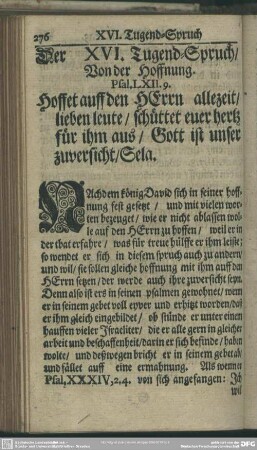 276
XVI. Tugend-Spruch
Der XVI. Tugend-Spruch/
Von der Hoffnung.
Psal. LXII. 9.
Hoffet auff den HErrn allezeit/
lieben leute/ schüttet euer hertz
für ihm aus/ Gott ist unser
zuversicht/ Sela.
NAchdem könig David sich in seiner hoff-
nung fest gesetzt/ und mit vielen wor-
ten bezeuget/ wie er nicht ablassen wol-
le auff den HErrn zu hoffen/ weil er in
der that erfahre/ was für treue hülffe er ihm leiste;
so wendet er sich in diesem spruch auch zu andern/
und will/ sie sollen gleiche hoffnung mit ihm auff den
HErrn setzen/ der werde auch ihre zuversicht seyn.
Denn also ist ers in seinen psalmen gewohnet/ wenn
er in seinem gebet voll eyver und erhitzt worden/ daß
er ihm gleich eingebildet/ ob stünde er unter einen
hauffen vieler Israeliter/ die er alle gern in gleicher
arbeit und beschaffenheit/ darin er sich befinde/ haben
wolte/ und deßwegen bricht er in seinem gebet ab/
und fället auff eine ermahnung. Als wenn er
Psal. XXXIV, 2,4. von sich angefangen: Ich
wil